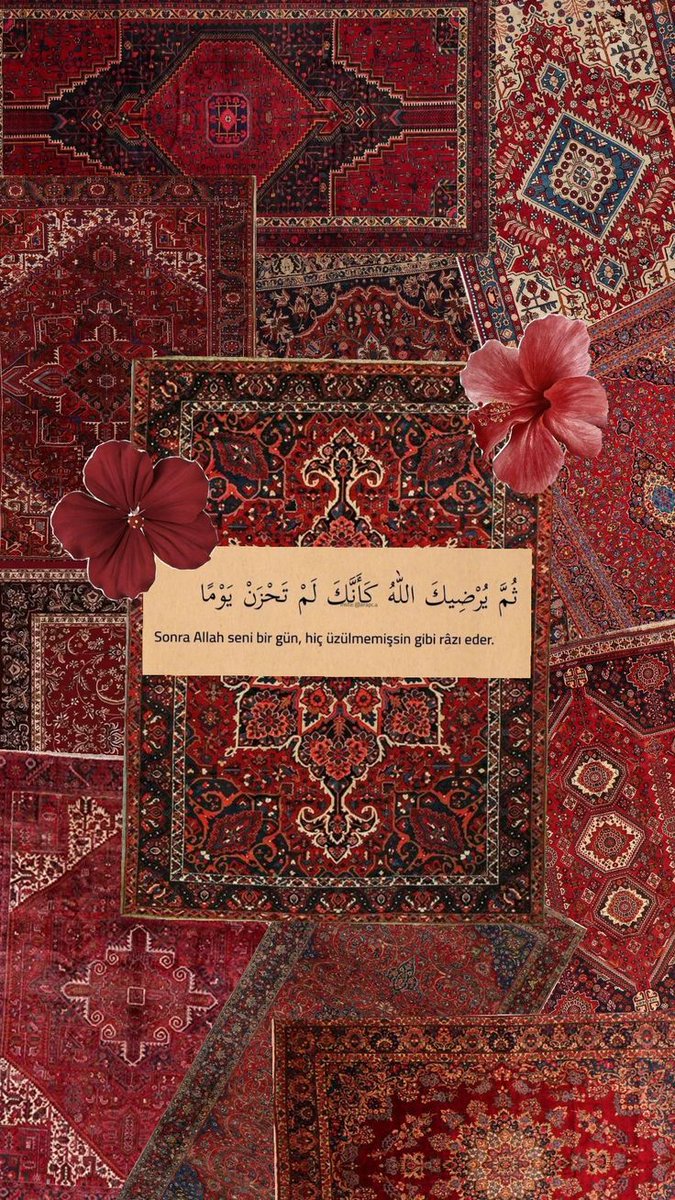 ثُمَّ يُرْضِيكَ اللهُ كَأَنَّكَ لَمْ تَحْزَنْ يَوْمًا
Sonra Allah seni bir gün, hiç üzülmemişsin gibi râzı eder.